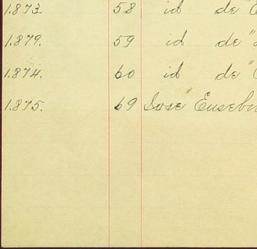 1873. 58 id de "
1879. 59 id de "
1874. 60 id de "
1875. 69 Jose" Euseb